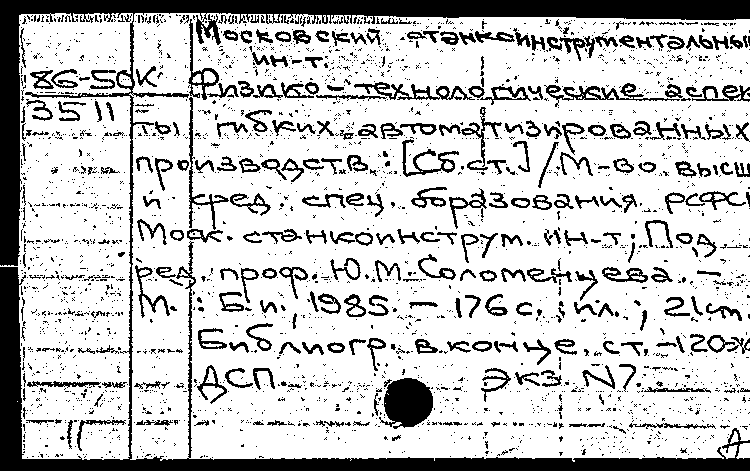 Московский станкоинструментальны
ин-т.
86-50К Физико-технологические аспек
3511 ты гибких автоматизированных
производств : [Сб.ст.] / М-во высш
и сред. спец. образования РСФС
Моск. станкоинструм. ин-т; Под
ред. проф. Ю.М.Соломенцева. –
М. : Б.и., 1985. – 176 с. : ил. ; 21 см.
Библиогр. в конце. ст. – 120 эк
ДСП. Экз. N7.
11
А